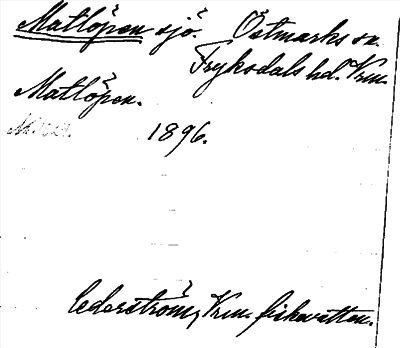 Matlöpen sjö. Östmarks sn.
Fryksdals hd. Vrm.
Matlöpen.
1896.
Cederström, Vrm. fiskevatten.